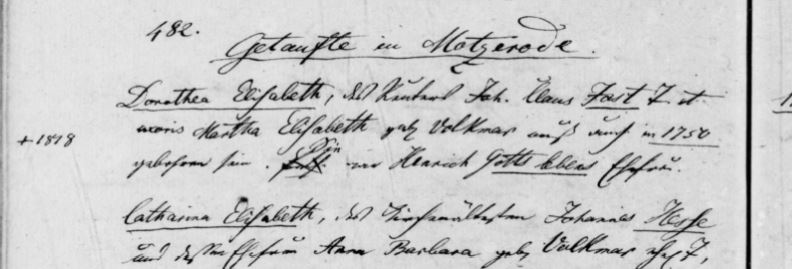 482.
Getaufte in Motzerode.
Dorothea Elisabeth, des Joh. Claus Fast T. et
+ 1818 uxoris Martha Elisabeth geb. Volkmar muß in 1750
geboren sein. Henrich Gottliebens Ehefrau.
Catharina Elisabeth, des Johannes Hesse
und dessen Ehefrau Anna Barbara geb. Volkmar T,